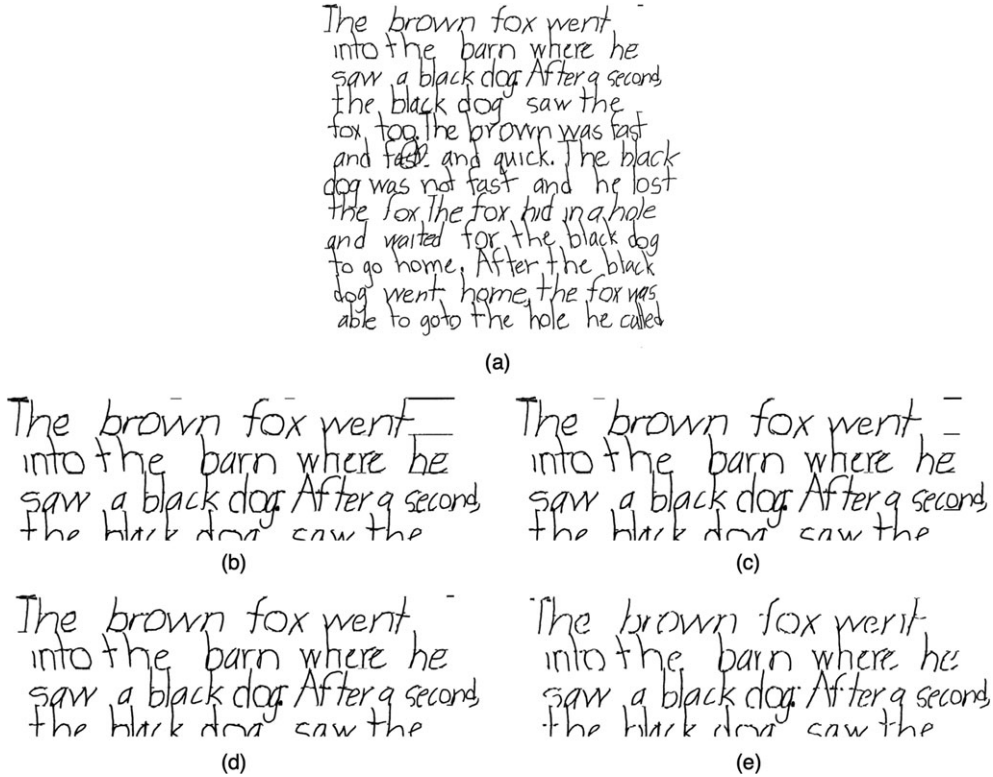 The brown fox went
into the barn where he
saw a black dog. After a second,
the black dog saw the
fox, too. The brown was fast
and and quick. The black
dog was not fast and he lost
the fox. The fox hid in a hole
and waited for the black dog
to go home. After the black
dog went home, the fox was
able to go to the hole he called
(a)
The brown fox went
into the barn where he
saw a black dog. After a second,
the black dog saw the
(b)
The brown fox went
into the barn where he
saw a black dog. After a second,
the black dog saw the
(c)
The brown fox went
into the barn where he
saw a black dog. After a second,
the black dog saw the
(d)
The brown fox went
into the barn where he
saw a black dog. After a second,
the black dog saw the
(e)